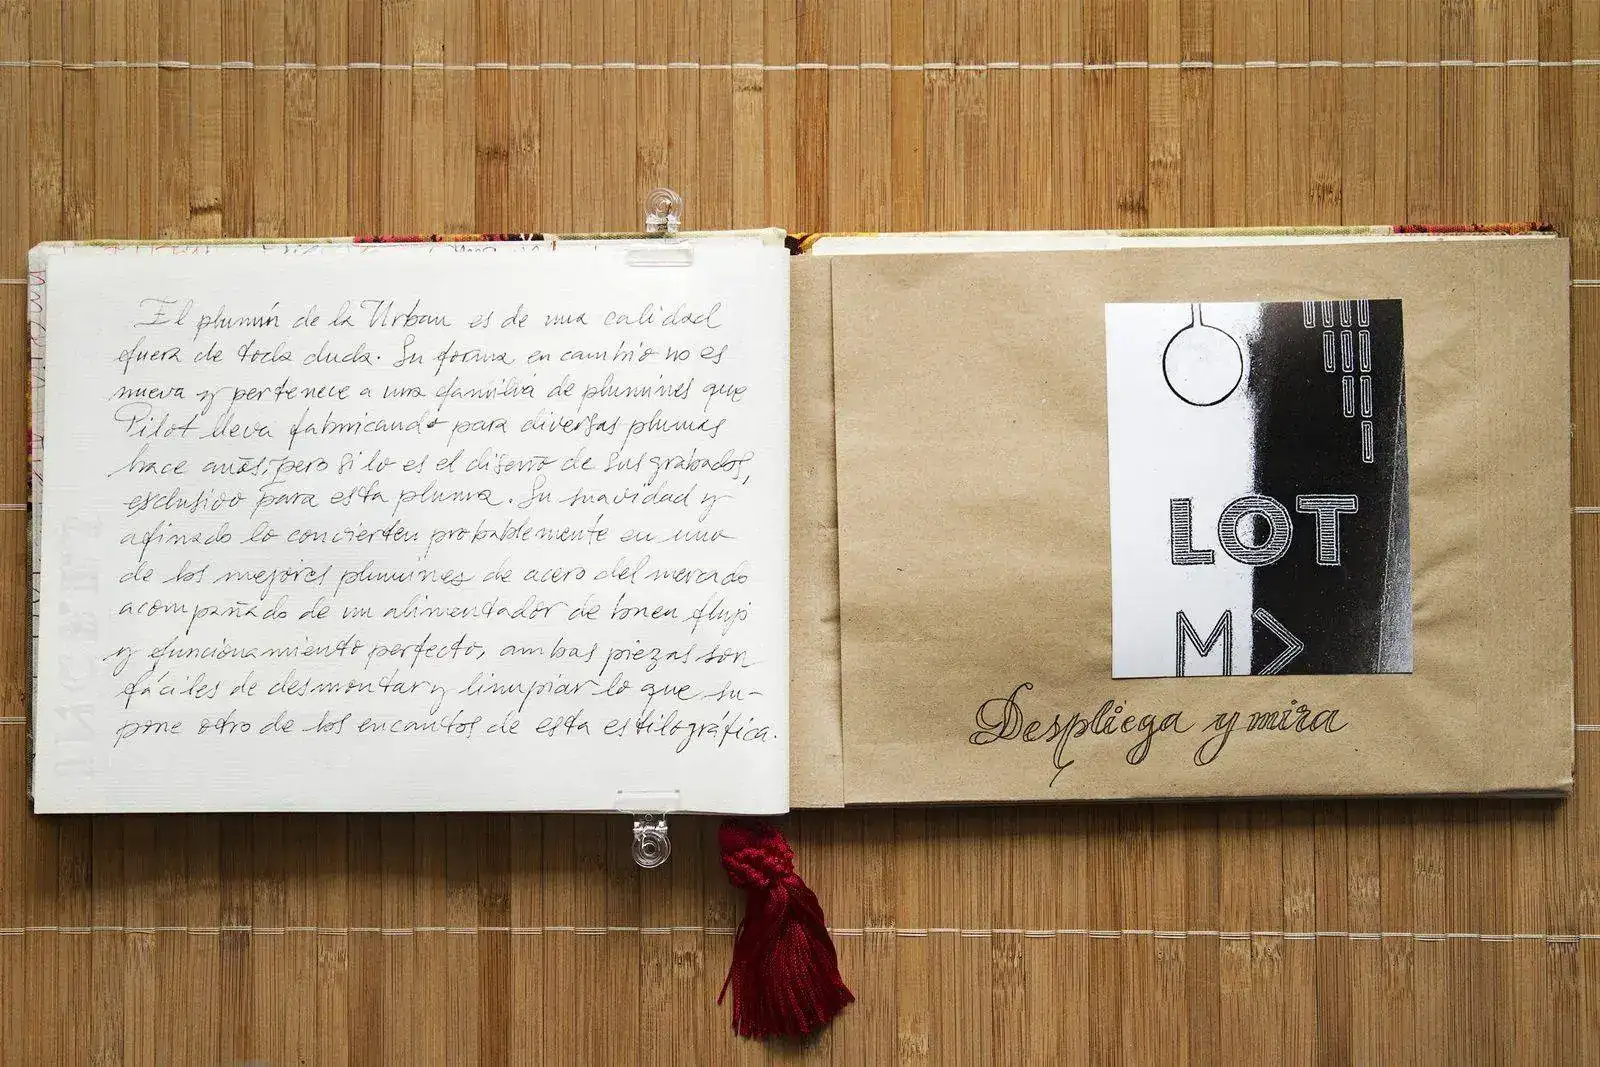 El plumín de la Urban es de una calidad
fuera de toda duda. Su forma en cambio no es
nueva y pertenece a una familia de plumines que
Pilot lleva fabricando para diversas plumas
hace años, pero si lo es el diseño de sus grabados,
esclusivo para esta pluma. Su suavidad y
afinado lo convierten probablemente en uno
de los mejores plumines de acero del mercado
acompañado de un alimentador de buen flujo
y funcionamiento perfecto, ambas piezas son
fáciles de desmontar y limpiar lo que su-
pone otro de los encantos de esta estilográfica.
LOT
M>
Despliega y mira